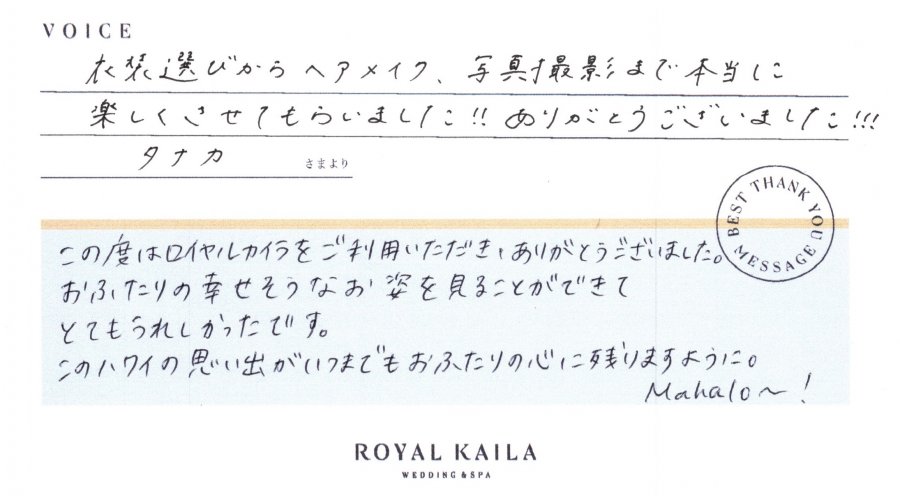 VOICE
衣装選びからヘアメイク、写真撮影まで本当に
楽しくさせてもらいました!! ありがとうございました!!!
タナカ さまより
BEST THANK YOU MESSAGE
この度はロイヤルカイラをご利用いただき、ありがとうございました。
おふたりの幸せそうなお姿を見ることができて
とてもうれしかったです。
このハワイの思い出がいつまでもおふたりの心に残りますように。
Mahalo〜!
ROYAL KAILA
WEDDING & SPA